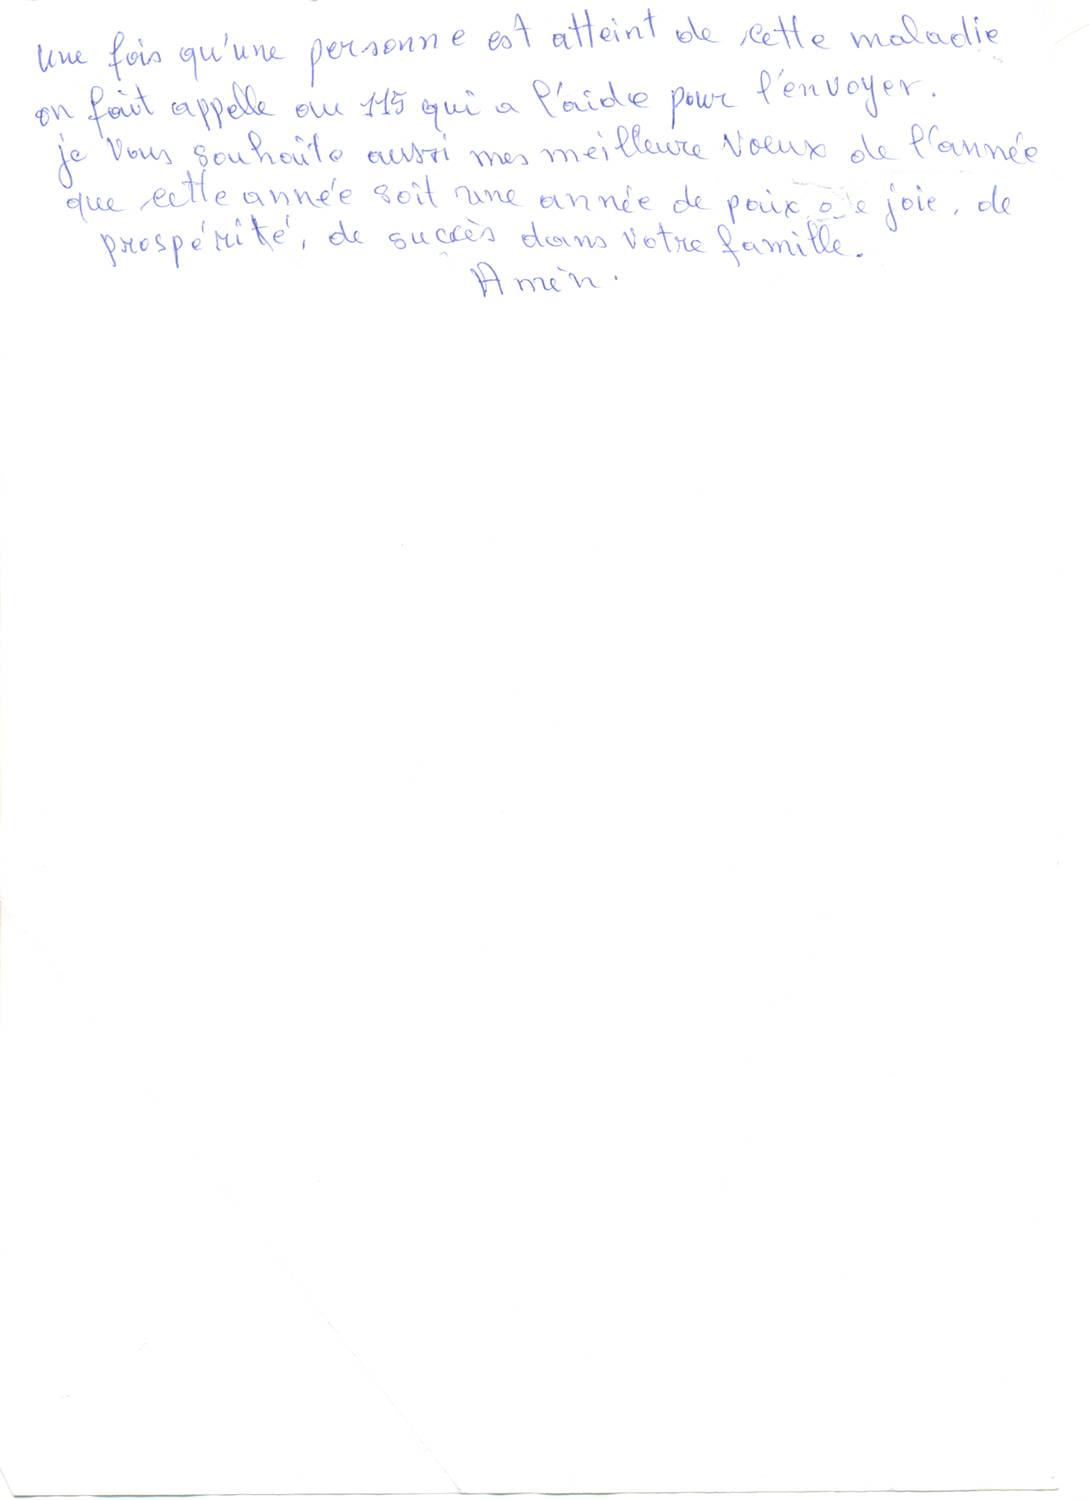 Une fois qu'une personne est atteint de cette maladie
on fait appelle au 115 qui a l'aide pour l'envoyer.
je vous souhaite aussi mes meilleure voeux de l'année
que cette année soit une année de paix, de joie, de
prospérité, de succès dans votre famille.
Amen.